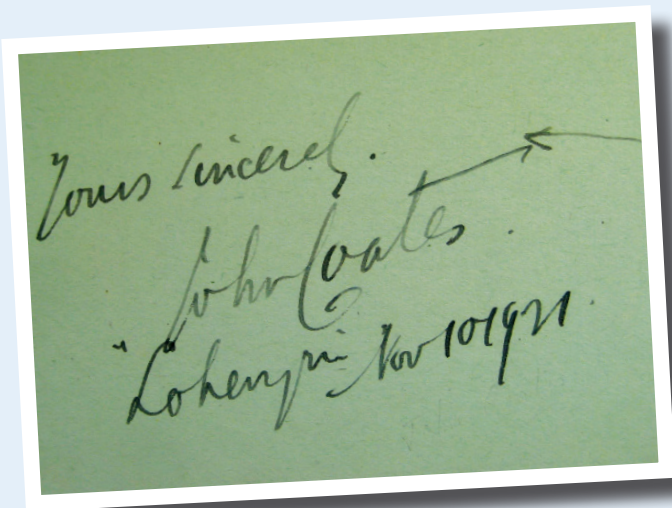 Yours sincerely.
John Coates.
"Lohengrin" Nov 10 1921.